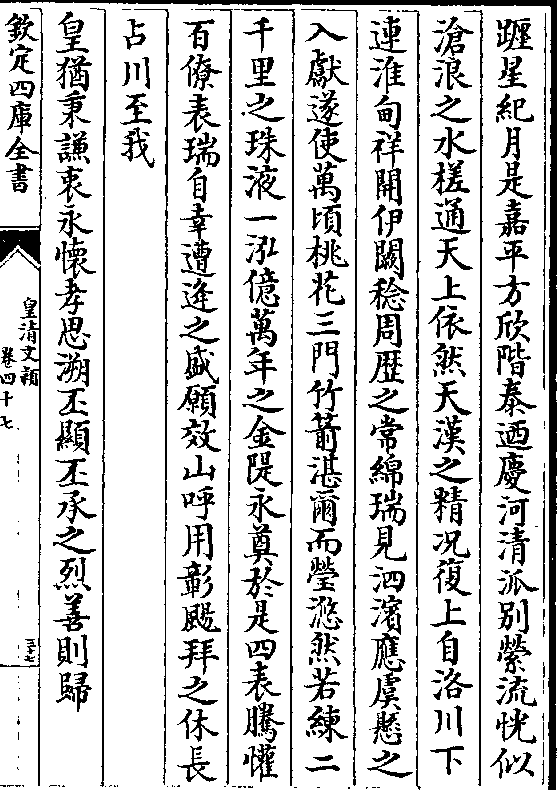 躔星紀月是嘉平方欣階泰迺慶河清派别縈流恍似
滄浪之水槎通天上依然天漢之精况復上自洛川下
連淮甸祥開伊闕稔周歴之常綿瑞見泗濱應虞懸之
入獻遂使萬頃桃花三門竹箭湛爾而瑩悠然若練二
千里之珠液一泓億萬年之金隄永奠於是四表騰懽
百僚表瑞自幸遭逄之盛願效山呼用彰颺拜之休長
占川至我
皇猶秉謙衷永懷孝思溯丕顯丕承之烈善則歸
欽定四庫全書
皇清文穎
卷四十七
三十七